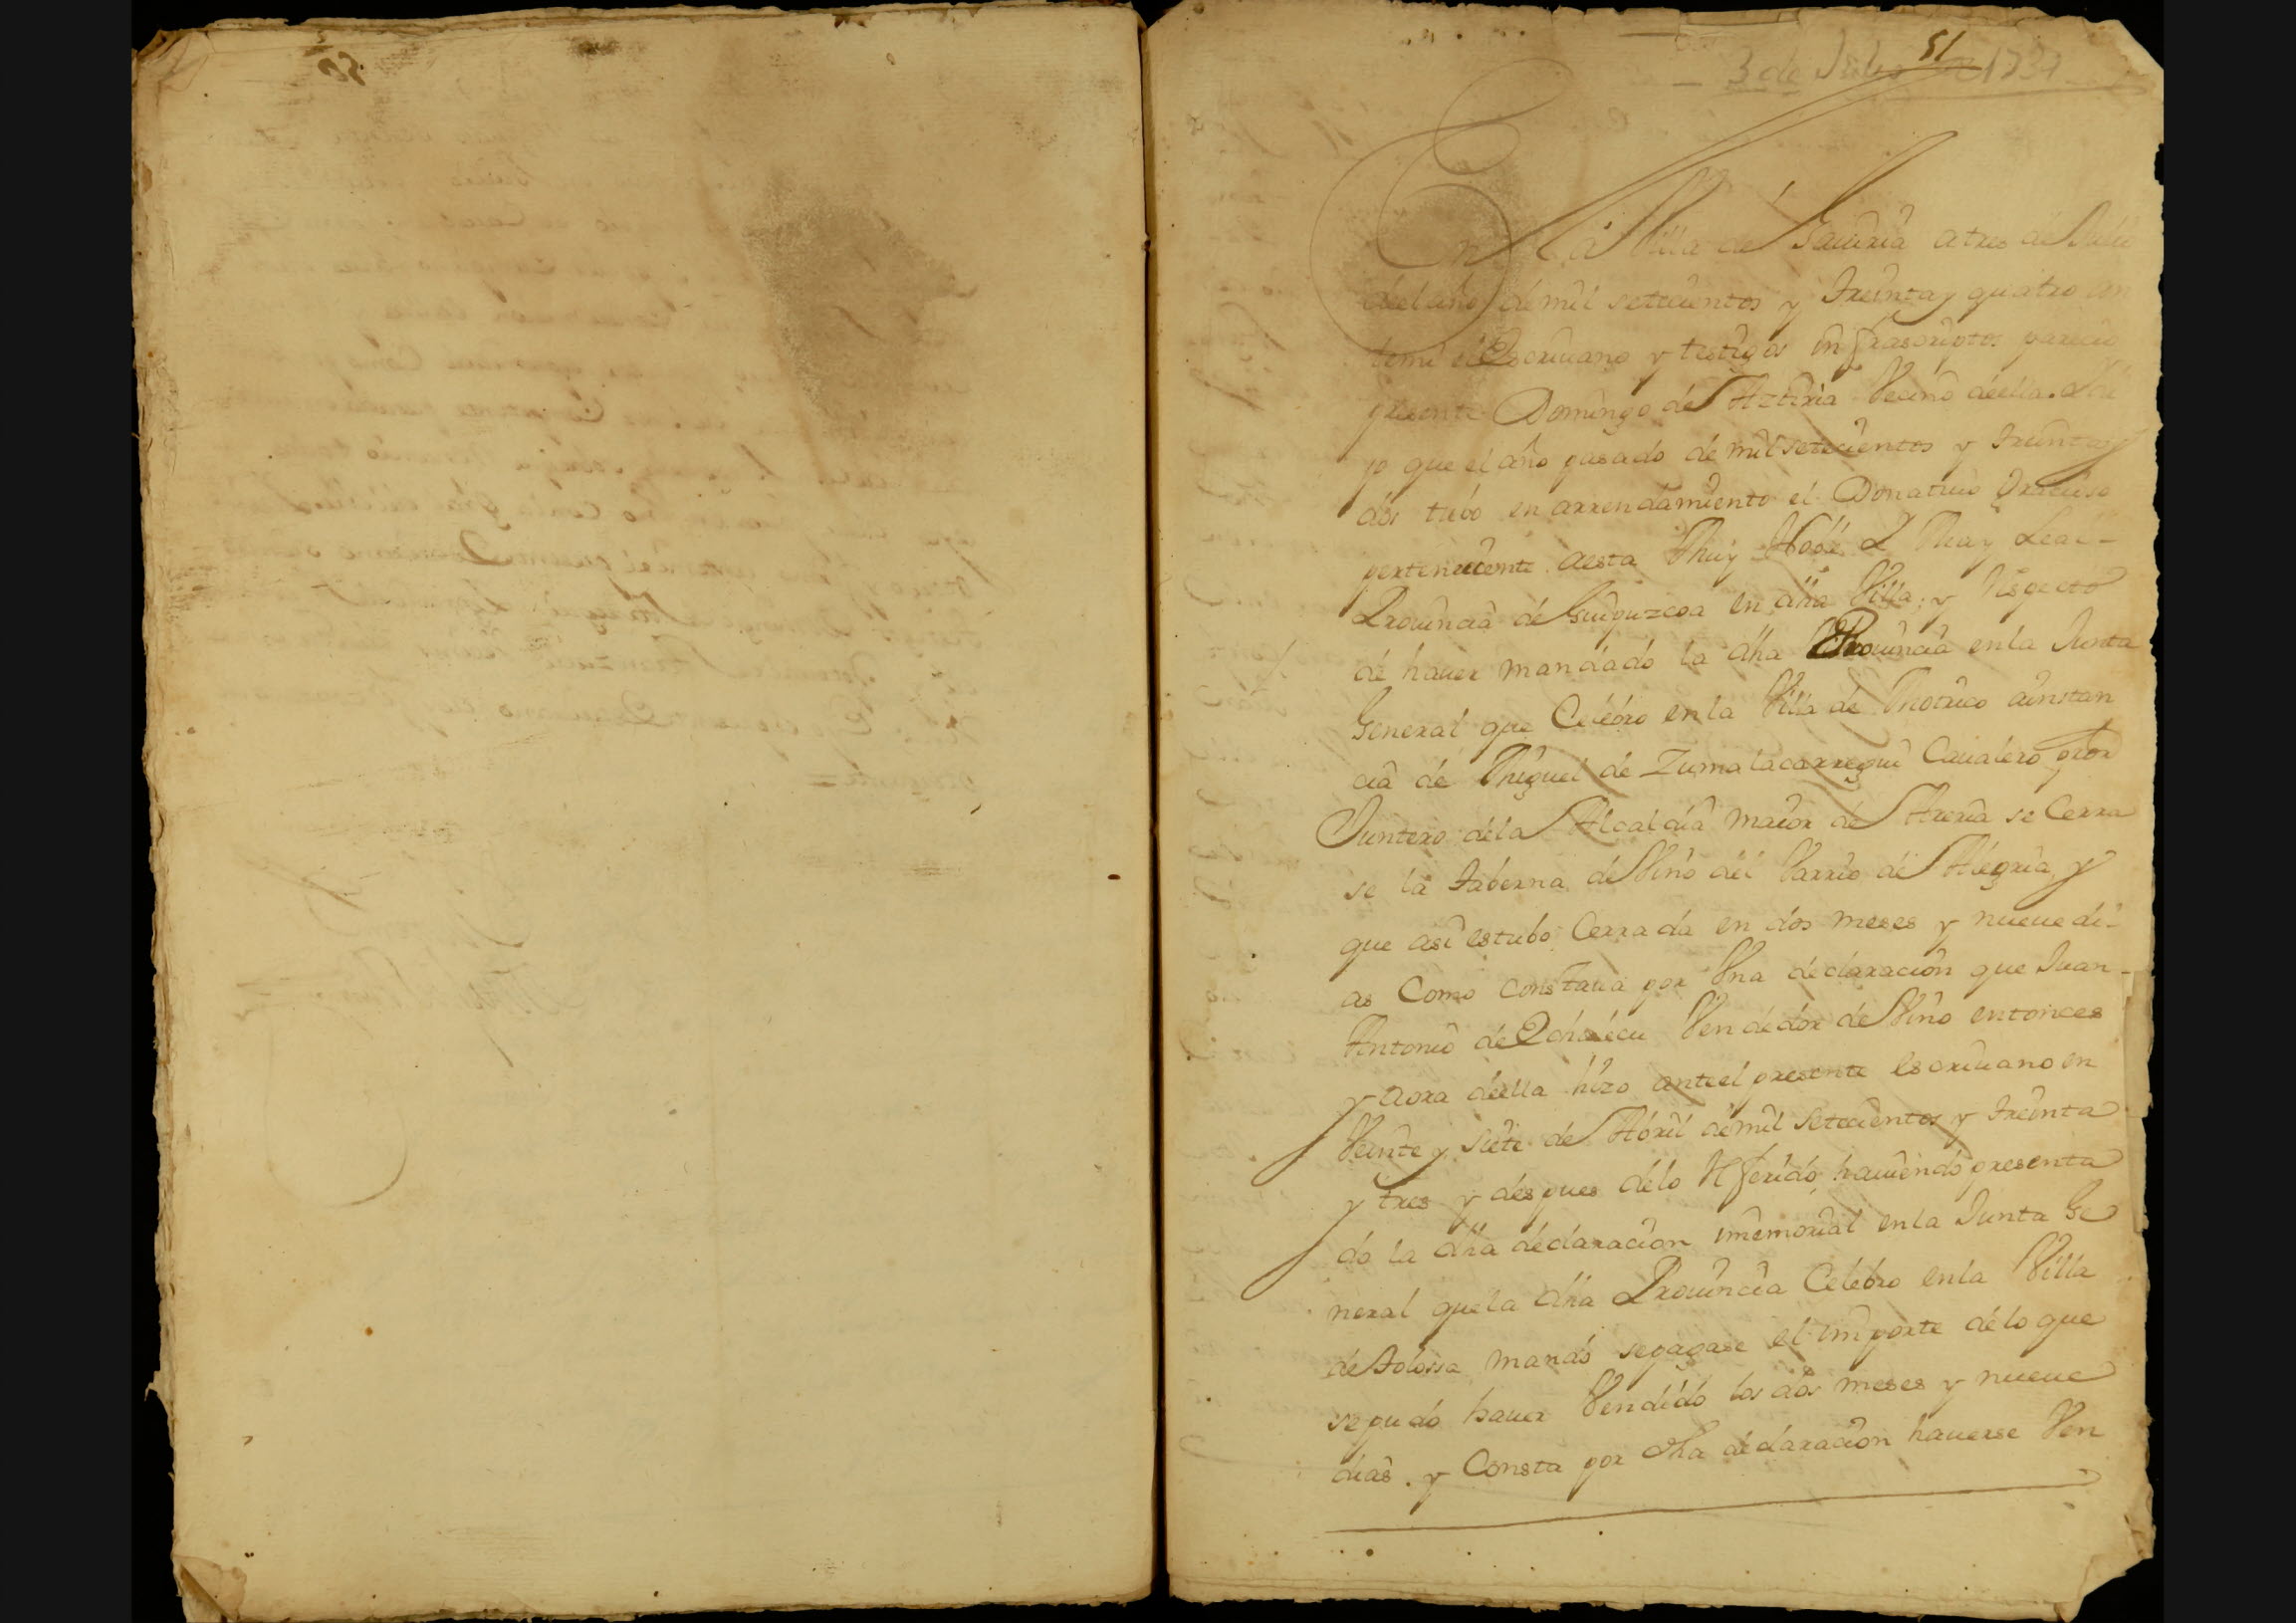 51
3 de Julio de 1734
En la Villa de Gauiria a tres de Julio
de el año de mil setecientos y treinta y quatro an
temi el Escriuano y testigos infrascriptos parecio
presente Domingo de Aztiria Vecino de ella. Y di
jo que el año pasado de mil setecientos y treinta y
dos tubo en arrendamiento el Donatiuo
perteneciente a esta Muy Noble y Muy Leal
Prouincia de Guipuzcoa en dha Villa, y respecto
de hauer mandado la dha Prouincia en la Junta
General que Celebro en la Villa de Motrico a instan
cia de Miguel de Zumalacarregui Caualero pror
Juntero de la Alcaldia maior de Areria se Cerra
se la taberna de Vino del Varrio de Alegria, y
que asi estubo Cerrada en dos meses y nueue di-
as Como constaua por Vna declaracion que Juan
Antonio de Vendedor de Vino entonces
y aora de ella hizo ante el presente escriuano en
Veinte y siete de Abril de mil setecientos y treinta
y tres y despues de lo referido, hauiendo presenta
do la dha declaracion y memorial en la Junta Ge
neral que la dha Prouincia Celebro en la Villa
de Tolossa mando se pagase el importe de lo que
se pudo hauer Vendido los dos meses y nueue
dias. y Consta por dha declaracion hauerse Ven